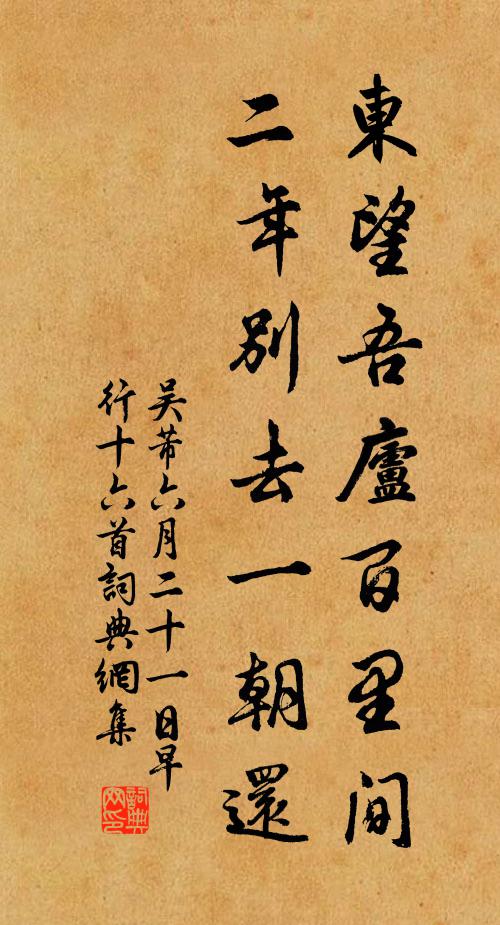 東望吾廬百里間
二年別去一朝還
吳芾六月二十一日早
行十六首詞典網集
詞典
网印